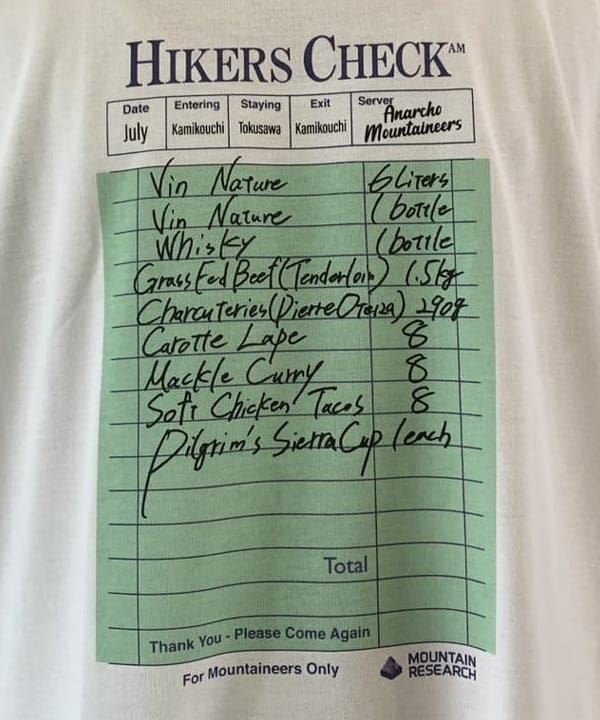 HIKERS CHECK AM
Date Entering Staying Exit Server
July Kamikouchi Tokusawa Kamikouchi Anarcho
Mountaineers
Vin Nature 6 Liters
Vin Nature 1 bottle
Whisky 1 bottle
Grass Fed Beef (Tenderloin) 1.5kg
Charcuteries (Pierre Oteiza) 290g
Carotte Lape 8
Mackle Curry 8
Soft Chicken Tacos 8
Pilgrim's Sierra Cup 1 each
Total
Thank You - Please Come Again
For Mountaineers Only
MOUNTAIN
RESEARCH